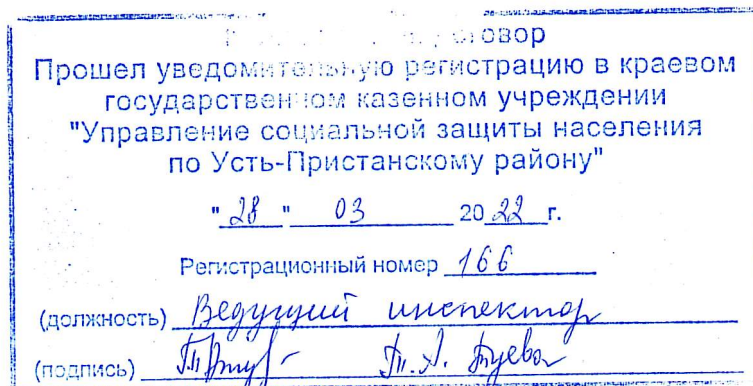 договор
Прошел уведомительную регистрацию в краевом
государственном казенном учреждении
"Управление социальной защиты населения
по Усть-Пристанскому району"
"28" 03 2022 г.
Регистрационный номер 166
(должность) Ведущий инспектор
(подпись) Т.А.